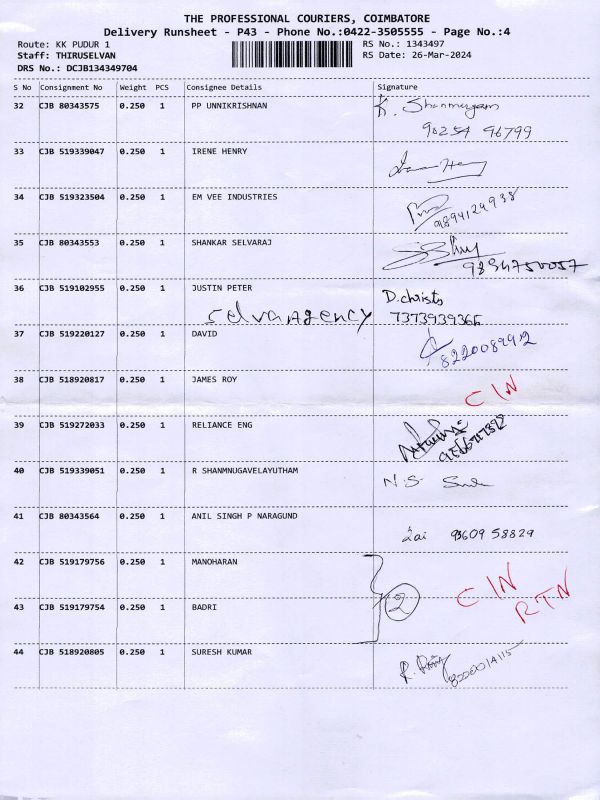 THE PROFESSIONAL COURIERS, COIMBATORE
Delivery Runsheet - P43 - Phone No.:0422-3505555 - Page No.:4
Route: KK PUDUR 1
RS No.: 1343497
Staff: THIRUSELVAN
RS Date: 26-Mar-2024
DRS No.: DCJB134349704
S No Consignment No Weight PCS Consignee Details Signature
32 CJB 80343575 0.250 1 PP UNNIKRISHNAN K. Shanmugam
90254 96799
33 CJB 519339047 0.250 1 IRENE HENRY
34 CJB 519323504 0.250 1 EM VEE INDUSTRIES
9894129938
35 CJB 80343553 0.250 1 SHANKAR SELVARAJ
36 CJB 519102955 0.250 1 JUSTIN PETER D.christo
selvaAgency 7373939366
37 CJB 519220127 0.250 1 DAVID
8220089912
38 CJB 518920817 0.250 1 JAMES ROY CIN
39 CJB 519272033 0.250 1 RELIANCE ENG
40 CJB 519339051 0.250 1 R SHANMNUGAVELAYUTHAM N.S.
41 CJB 80343564 0.250 1 ANIL SINGH P NARAGUND
93609 58829
42 CJB 519179756 0.250 1 MANOHARAN CIN
2 RTN
43 CJB 519179754 0.250 1 BADRI
44 CJB 518920805 0.250 1 SURESH KUMAR